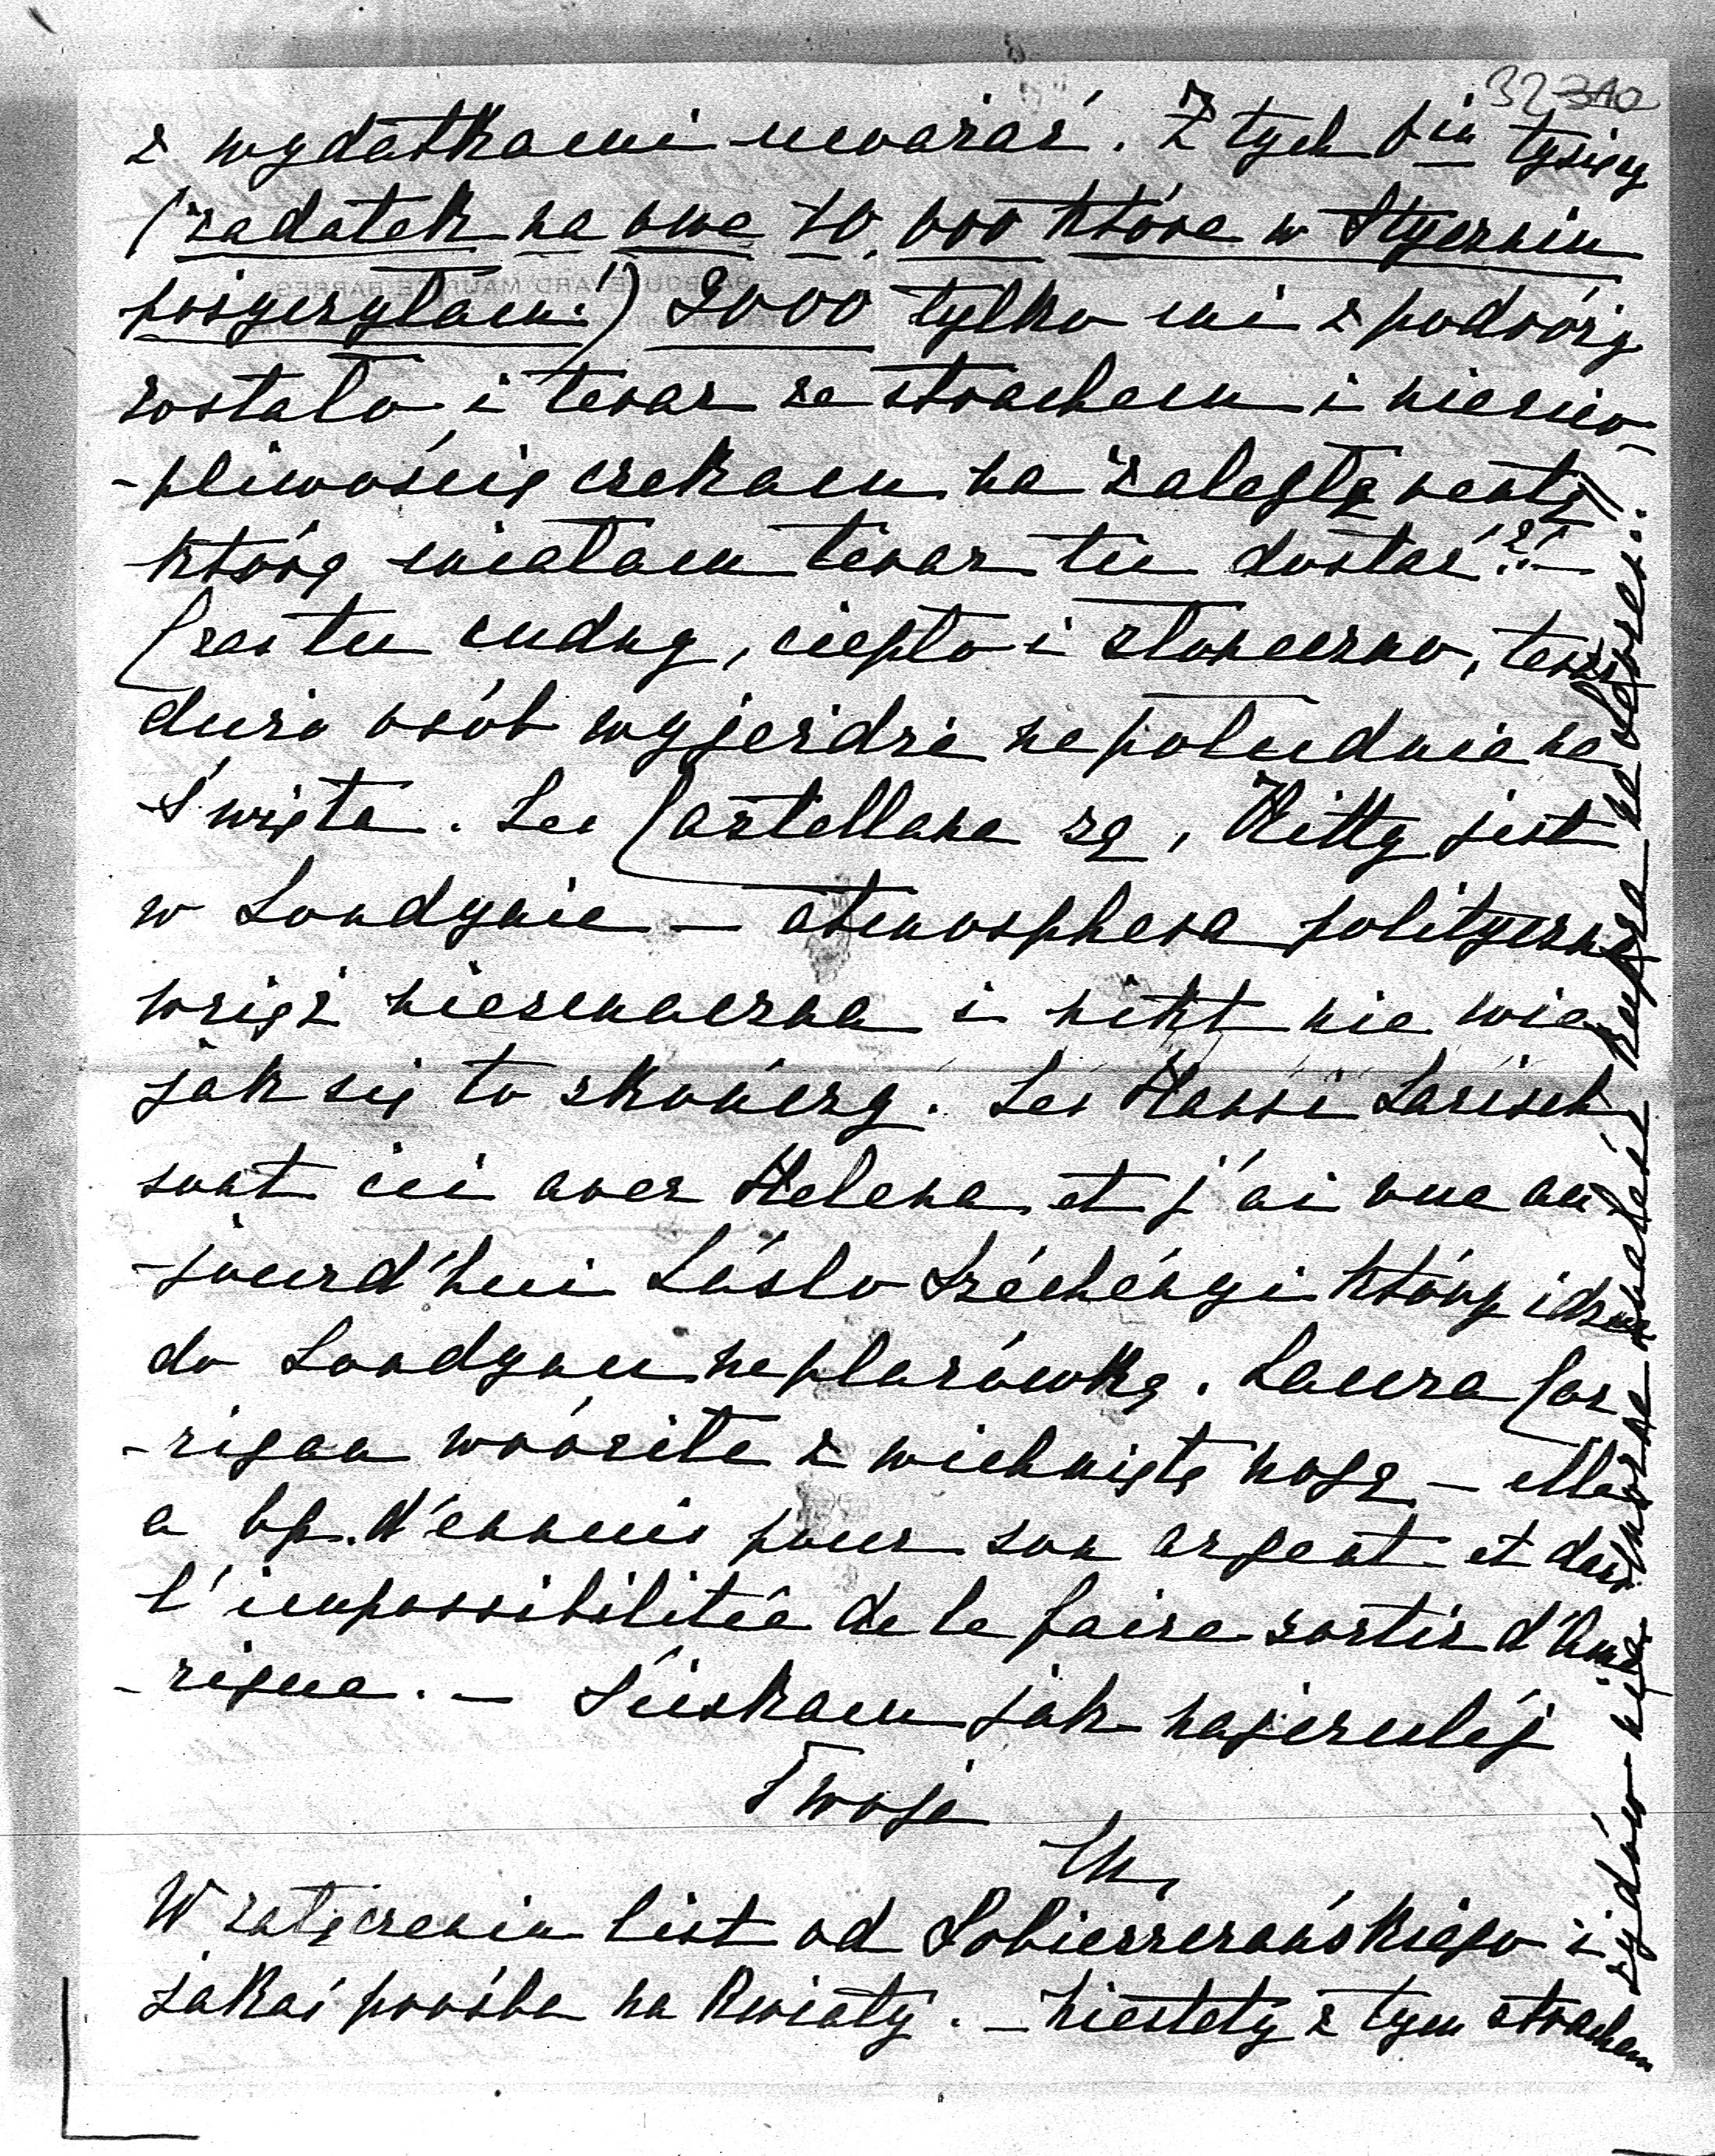 32 310
z wydatkami uważać. Z tych 5iu tysięcy
(zadatek na owe 10.000 które w Styczniu
pożyczyłam!) 2000 tylko mi z podróży
zostało i teraz ze strachem i niecier-
-pliwością czekam na zaległą rentę
którą miałam teraz tu dostać?!—
Czas tu cudny, ciepło i słoneczno, teraz
dużo osób wyjeżdża na południe na
Święta. Les Castellane są, Kitty jest
w Londynie — atmosphera polityczna
wciąż niesmaczna i nikt nie wie
jak się to skończy. Les Hansi Larisch
sont ici avec Helena et j'ai vue au-
-jourd'hui László Széchényi który idzie
do Londynu na placówkę. Laura Cor-
-rigan wróciła z wichniętą nogą — elle
a bp. d'ennuis pour son argent et dans
l'impossibilitée de le faire sortir d'Amé-
-rique. — Ściskam jak najczulej
Twoja
W załączeniu list od Sobieszczańskiego i
jakaś prośba na kwiaty. — Niestety z tym strachem
żydów nie można znaleźć kupca na